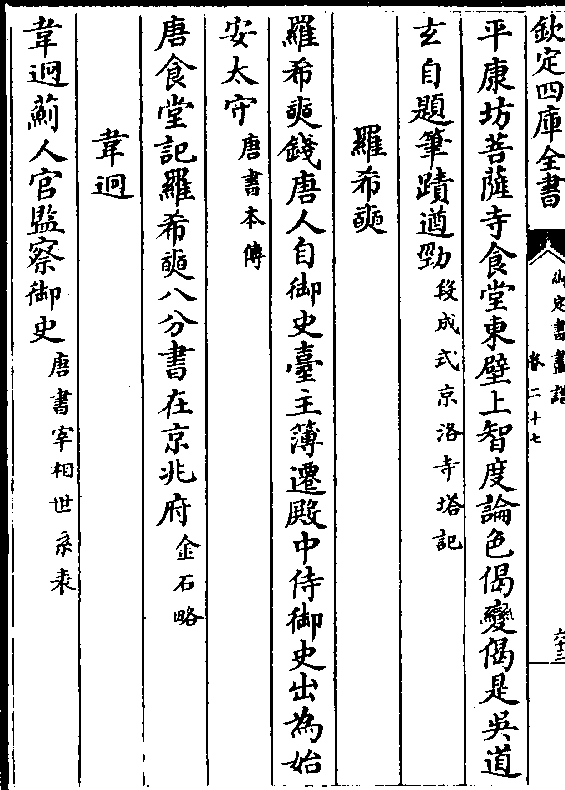 欽定四庫全書
御定書畫譜
卷二十七
六十三
平康坊菩薩寺食堂東壁上智度論色偈變偈是吳道
玄自題筆蹟遒勁段成式京洛寺塔記
羅希奭
羅希奭錢唐人自御史臺主簿遷殿中侍御史出為始
安太守唐書本傳
唐食堂記羅希奭八分書在京兆府金石略
韋迥
韋迥薊人官監察御史唐書宰相世系表